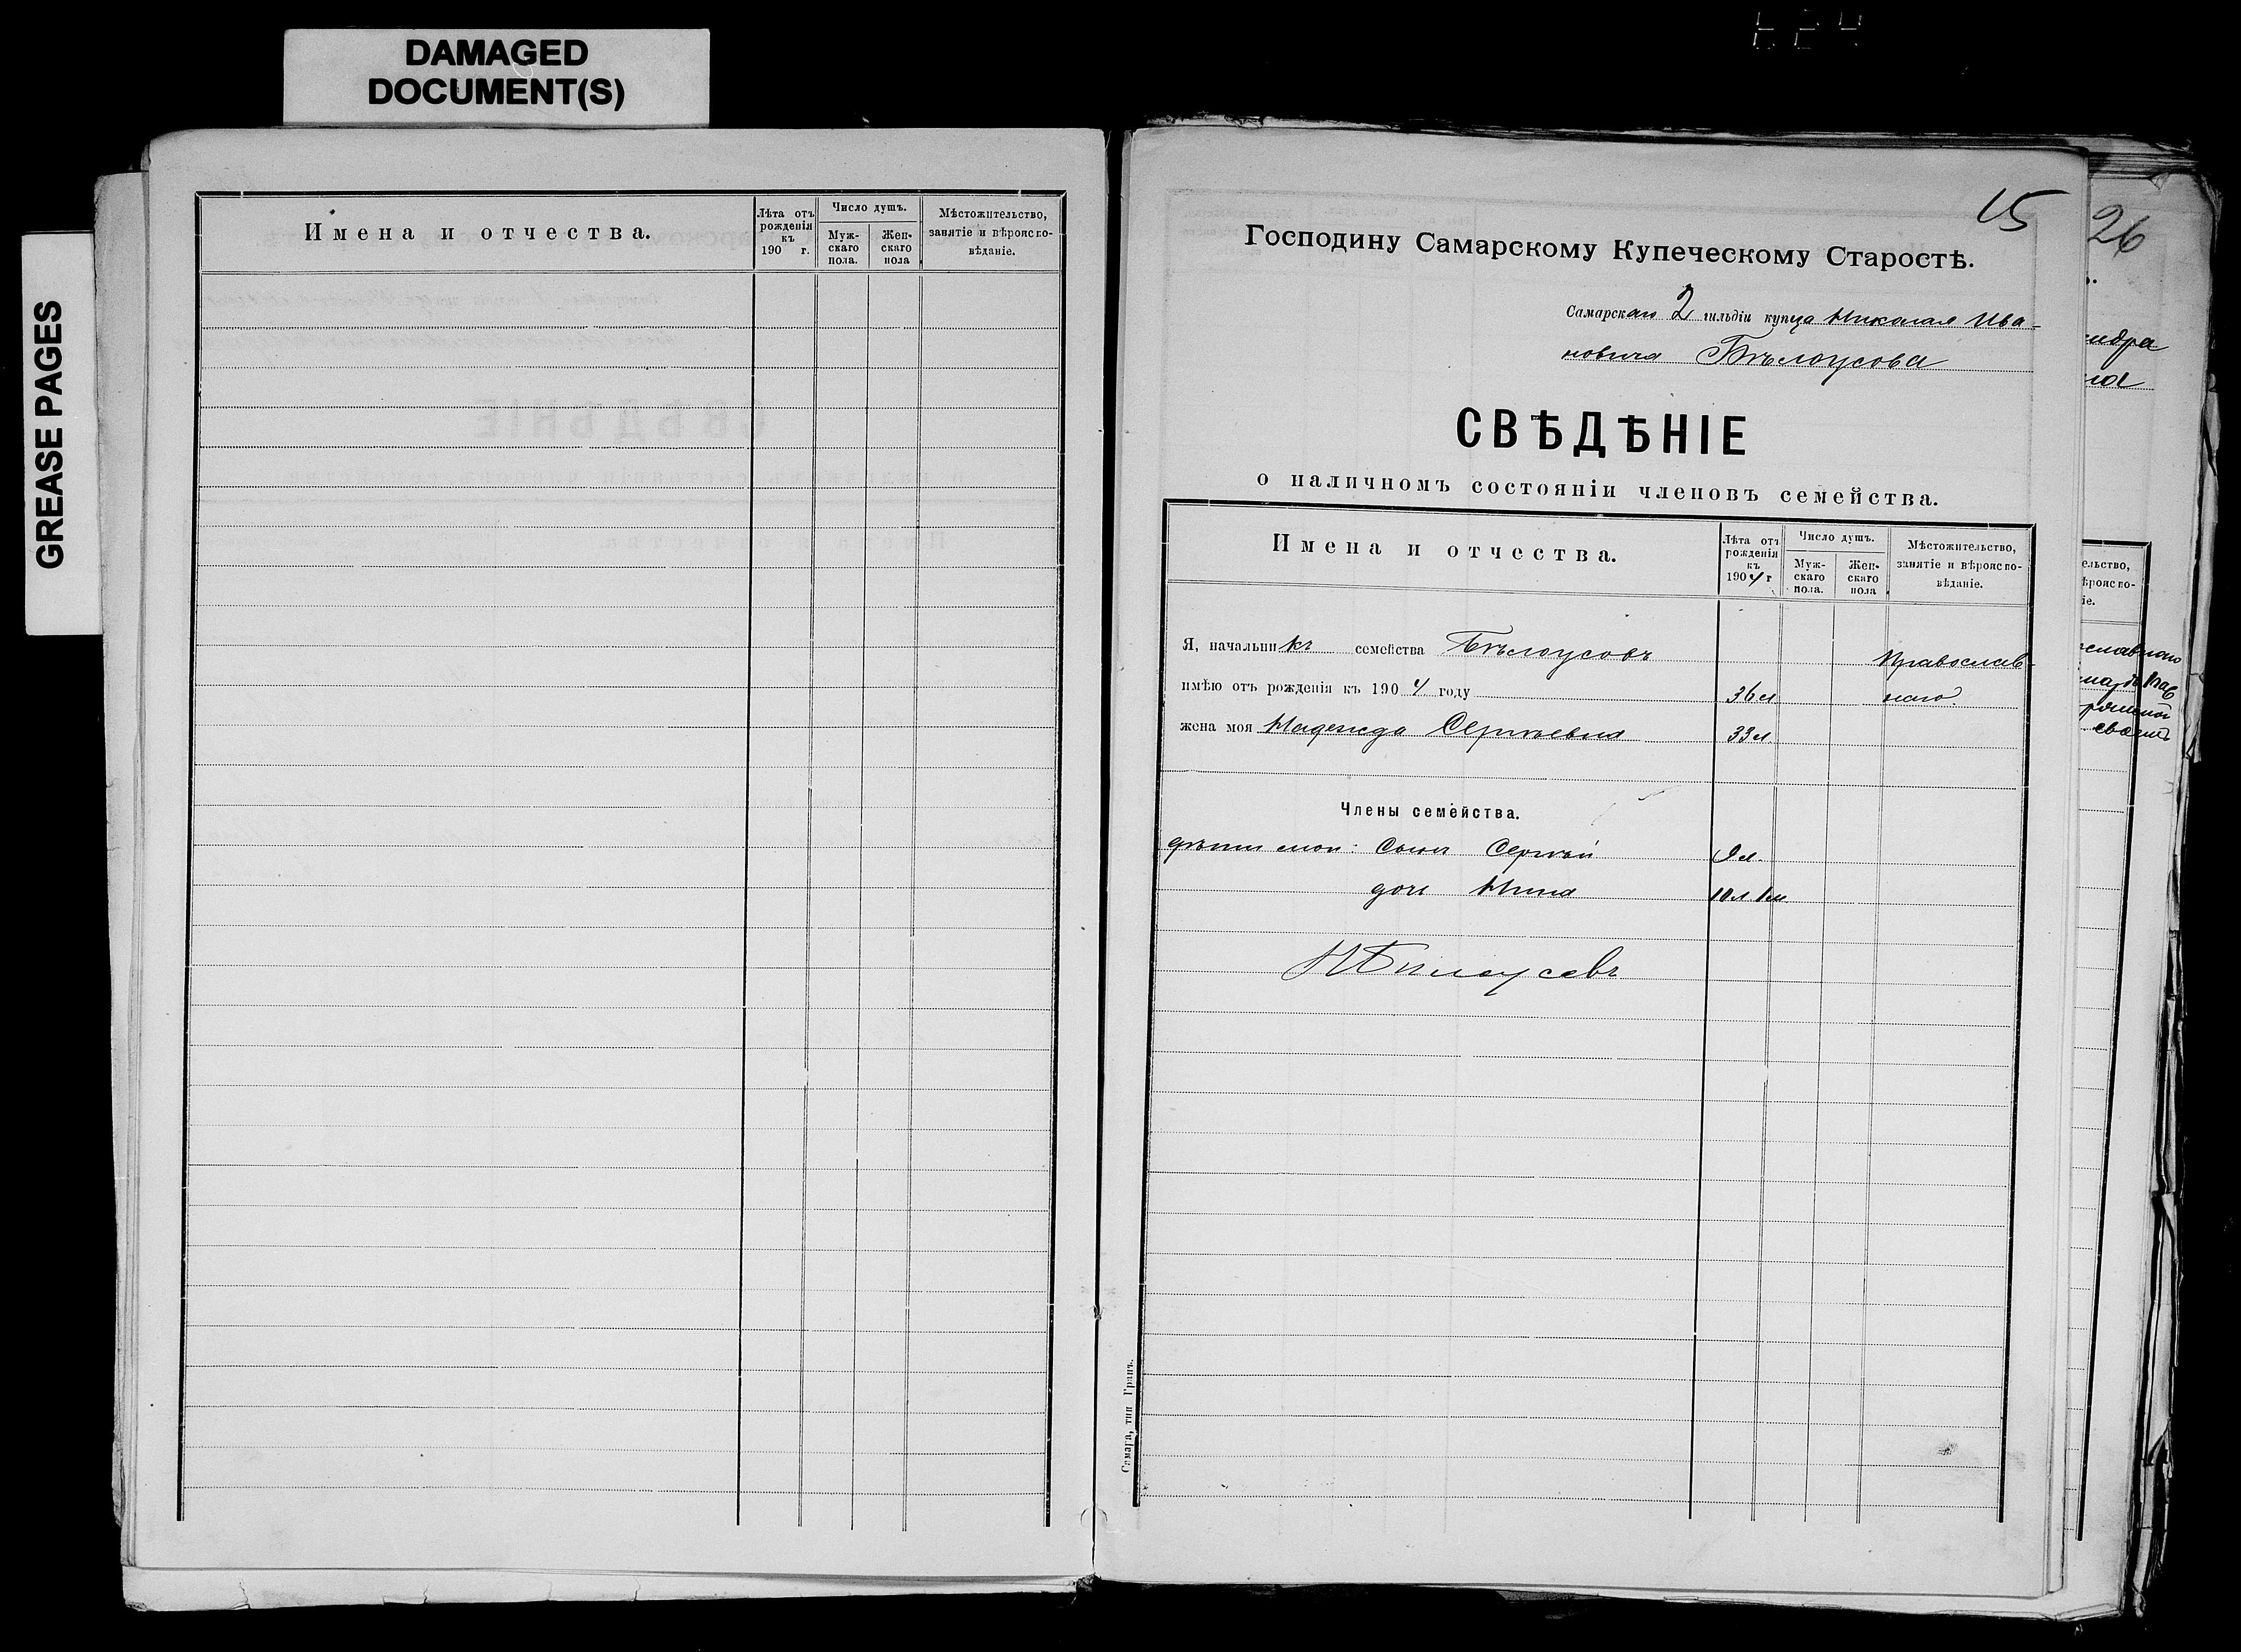 DAMAGED
DOCUMENT(S)
GREASE PAGES
Имена и отчества.
Лѣта отъ рожденія къ 190 г.
Число душъ.
Мужскаго пола.
Женскаго пола
Мѣстожительство, занятіе и вѣроисповѣданіе.
15
Господину Самарскому Купеческому Старостѣ.
Самарскаго 2 гильдіи купца Николая Ива-
новича Бѣлоусова
СВѢДѢНІЕ
о наличномъ состояніи членовъ семейства.
Имена и отчества.
Лѣта отъ рожденія къ 1904 г
Число душъ.
Мужскаго пола.
Женскаго пола
Мѣстожительство, занятіе и вѣроисповѣданіе.
Я, начальникъ семейства Бѣлоусовъ Православ-
имѣю отъ рожденія къ 1904 году 36 л наго.
жена моя Надежда Сергѣевна 33 л.
Члены семейства.
дѣти мои: Сынъ Сергѣй 9 л.
дочь Нина 10 л. 1 м.
Н Бѣлоусовъ
Самара, тип Гранъ.
26